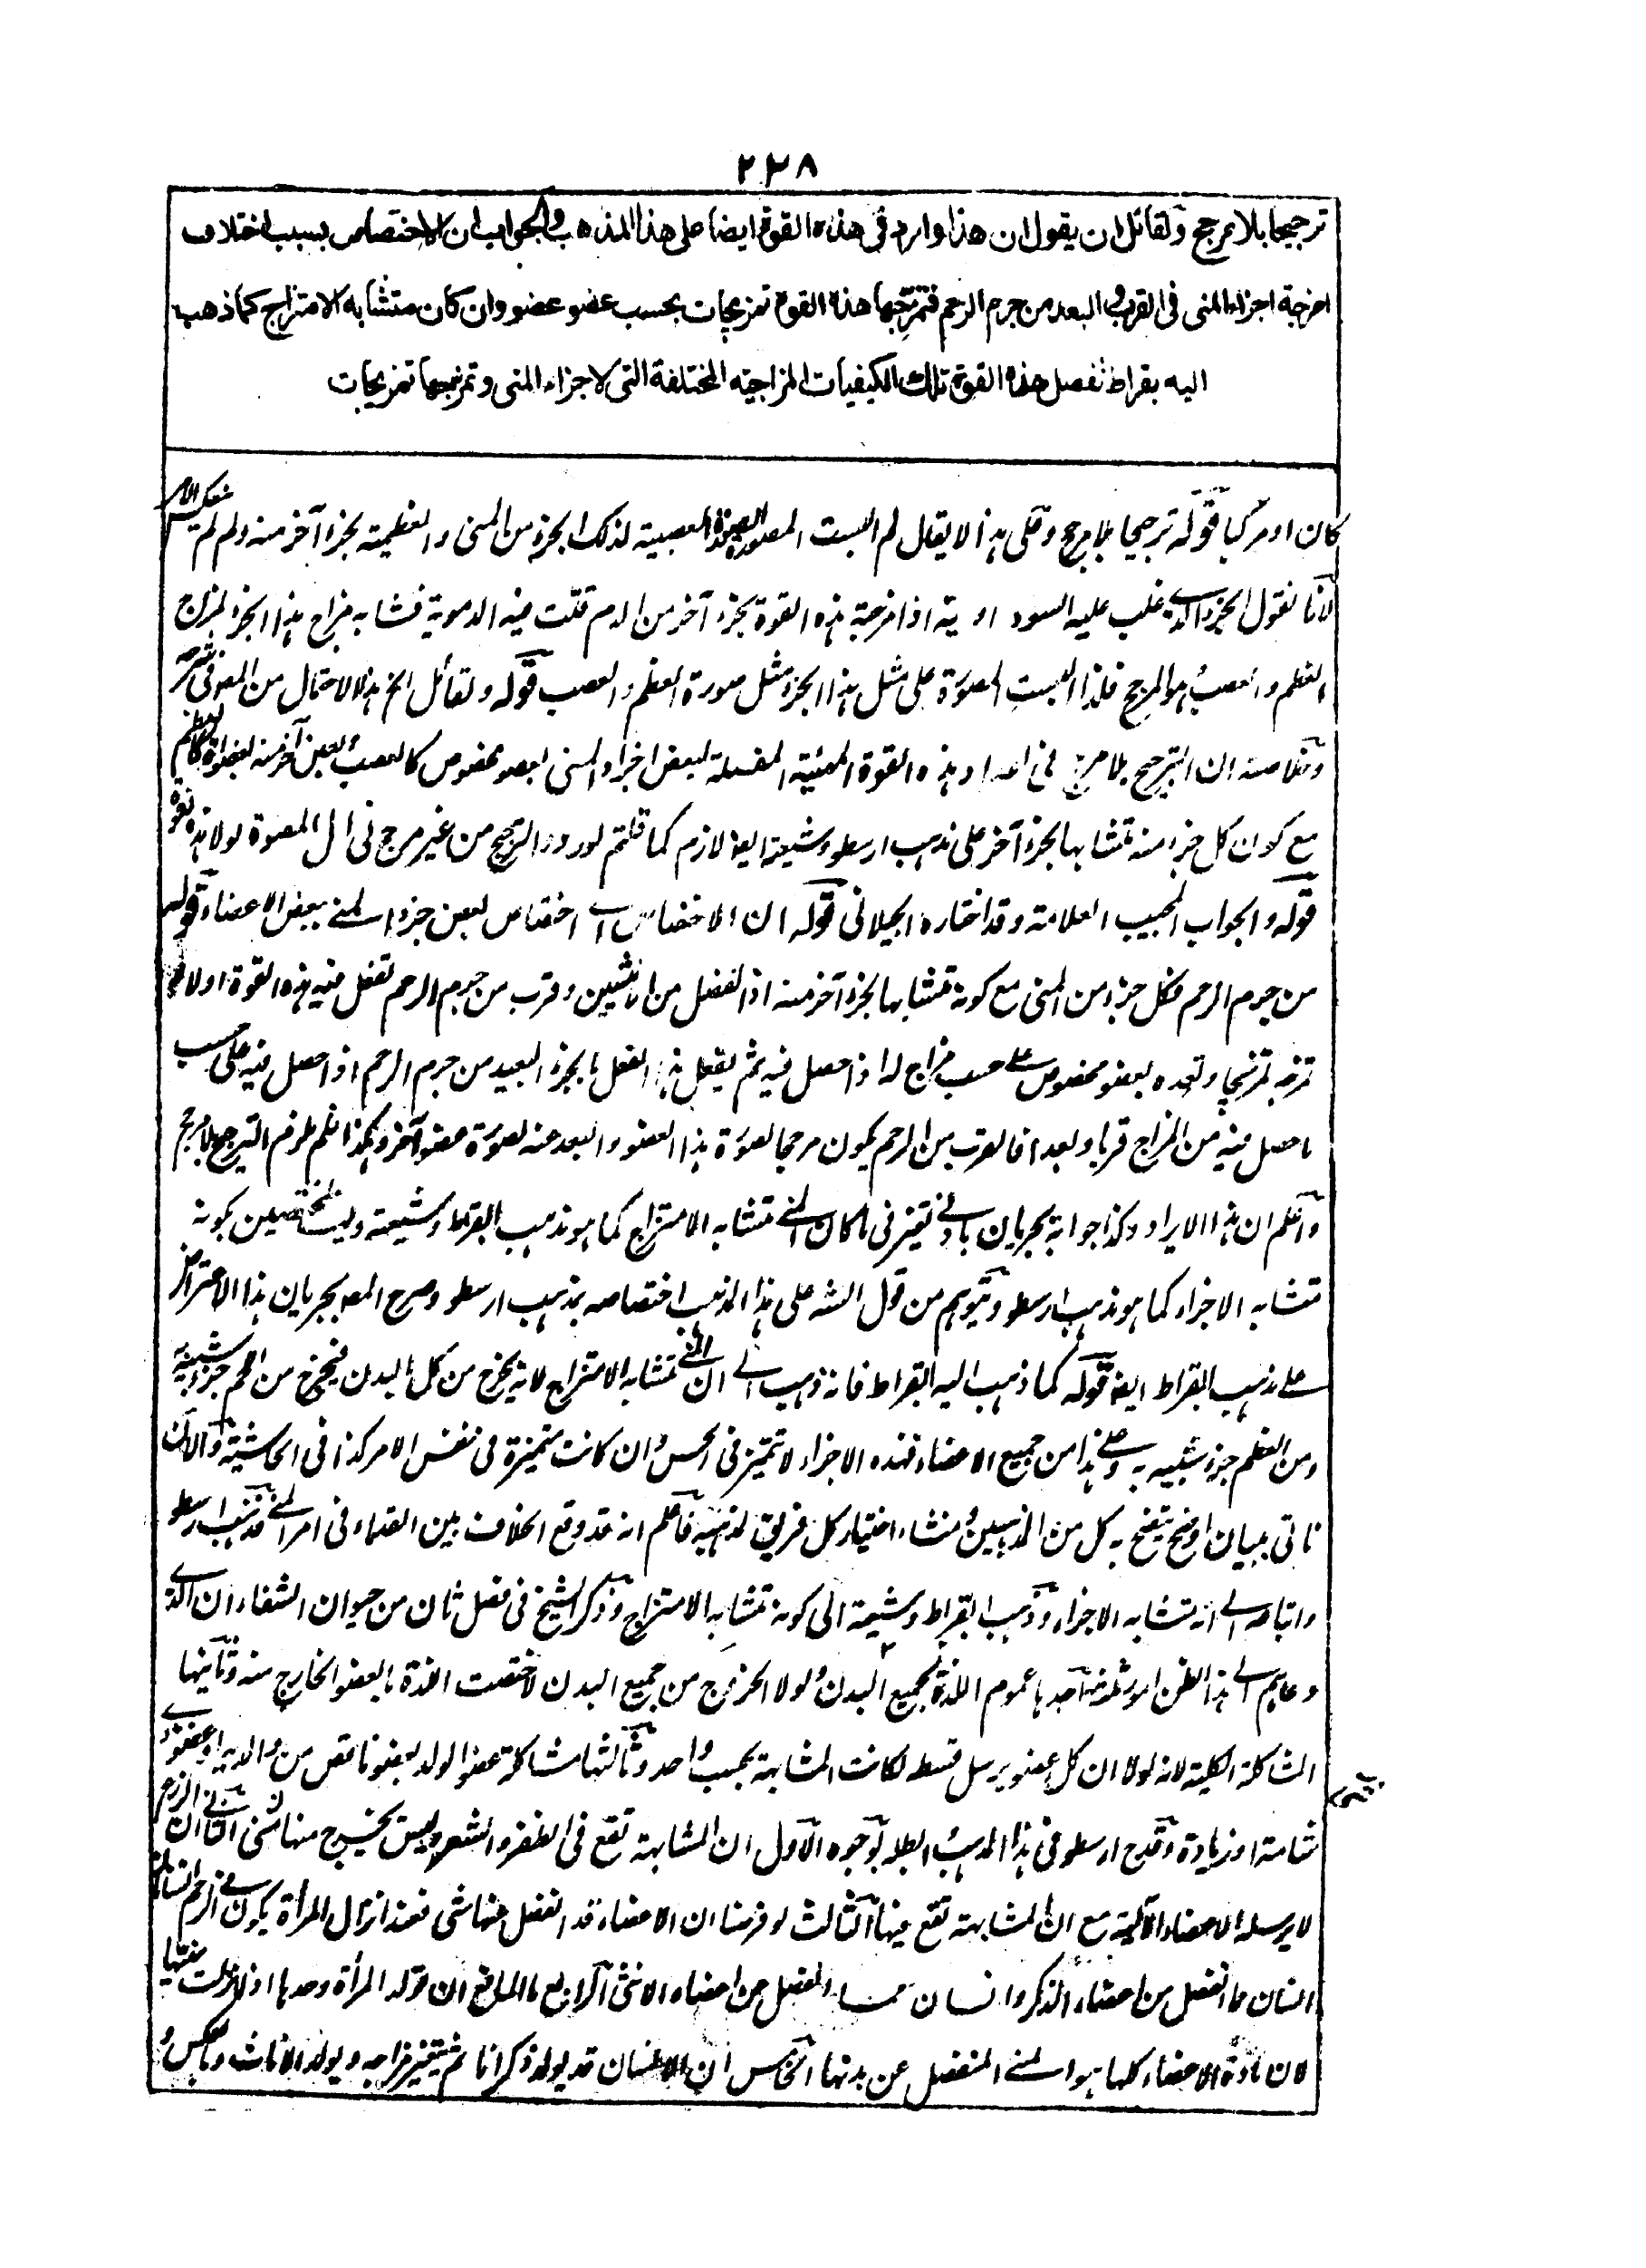 ٢٣٨
ترجيحا بلا مرجح ولقائل ان يقول ان هذا وارد فى هذه القوة ايضا على هذا المذهب والجواب ان الاختصاص بسبب اختلاف
امزجة اجزاء المنى فى القرب والبعد من جرم الرحم فتمزّجها هذه القوة تمزيجات بحسب عضو عضو وان كان متشابه الامتزاج كما ذهب
اليه بقراط تفصل هذه القوة تلك الكيفيات المزاجية المختلفة التى لاجزاء المنى وتمزجها تمزيجات
كان او مركبا قوله ترجيحا بلا مرجح وعلى هذا لا يقال لم البست المصورة الصورة العصبية لذلك الجزء من المنى والعظمية بجزء آخر منه ولم لم ينعكس الامر
لانا نقول الجزء الذى غلب عليه السوداوية اذا مزجته هذه القوة بجزء آخر من الدم قلّت فيه الدموية فشابه مزاج هذا الجزء لمزاج
العظم والعصب وهو المرجح فلذا البست المصورة على مثل هذا الجزء مثل صورة العظم والعصب قوله ولقائل الخ هذا الاحتمال من المص فى شرحه
وخلاصته ان الترجيح بلا مرجح فى اعداد هذه القوة المهيئة المفصلة لبعض اجزاء المنى لعضو مخصوص كالعصب وبعض آخر منه لعضو آخر كالعظم
مع كون كل جزء منه متشابها لجزء آخر على مذهب ارسطو وشيعته ايضا لازم كما قلتم لورود الترجيح من غير مرجح فى المصورة لولا هذه القوة
قوله والجواب المجيب العلامة وقد اختاره الجيلانى قوله ان الاختصاص اى اختصاص بعض جزء المنى ببعض الاعضاء قوله
من جرم الرحم فكل جزء من المنى مع كونه متشابها لجزء آخر منه اذا انفصل من الانثيين وقرب من جرم الرحم تفعل فيه هذه القوة اولا
تمزجه تمزيجا وتعده لعضو مخصوص على حسب مزاج له اذا حصل فيه ثم يفعل هذا الفعل بالجزء البعيد من جرم الرحم اذا حصل فيه على حسب
ما حصل فيه من المزاج قربا وبعدا فالقرب من الرحم يكون مرجحا لصورة هذا العضو والبعد عنه لصورة عضو آخر وهكذا فلم يلزم الترجيح بلا مرجح
واعلم ان هذا الايراد وكذا جوابه يجريان بادنى تغير فى ما كان المنى متشابه الامتزاج كما هو مذهب ابقراط وشيعته وليسا مختصين بكونه
متشابه الاجزاء كما هو مذهب ارسطو ويتوهم من قول الشه على هذا المذهب اختصاصه بمذهب ارسطو وصرح المص بجريان هذا الاعتراض
على مذهب ابقراط ايضا قوله كما ذهب اليه ابقراط فانه ذهب الى ان المنى متشابه الامتزاج لانه يخرج من كل البدن فيخرج من اللحم جزء شبيه به
ومن العظم جزء شبيه به وعلى هذا من جميع الاعضاء فهذه الاجزاء لا تتميز فى الحس وان كانت متميزة فى نفس الامر كذا فى الحاشية والآن
ناتى ببيان اوضح يتضح به كل من المذهبين ومنشاء اختيار كل فريق لمذهبه فاعلم انه قد وقع الخلاف بين القدماء فى امر المنى فذهب ارسطو
واتباعه الى انه متشابه الاجزاء وذهب ابقراط وشيعته الى كونه متشابه الامتزاج وذكر الشيخ فى فصل ثان من حيوان الشفاء ان الذى
دعاهم الى هذا الظن امور ثلثة احدها عموم اللذة لجميع البدن ولولا الخروج من جميع البدن لاختصت اللذة بالعضو الخارج منه وثانيها
المشاكلة الكلية لانه لولا ان كل عضو يرسل قسطه لكانت المشابهة بحسب واحد وثالثها مشاكلة عضو الولد بعضو ناقص من والديه او عضو ذى
شامة او زيادة وقدح ارسطو فى هذا المذهب وابطله بوجوه الاول ان المشابهة تقع فى الظفر والشعر وليس يخرج منها شئ الثانى ان الزرع
لا يرسله الاعضاء الآلية مع ان المشابهة تقع فيها الثالث لو فرضنا ان الاعضاء قد انفصل عنها شئ فعند انزال المرأة يكون فى الرحم انسانان
انسان مما انفصل من اعضاء الذكر وانسان مما انفصل من اعضاء الانثى الرابع ما المانع ان تولد المرأة وحدها اذا انزلت منيها
لان مادة الاعضاء كلها هو المنى المنفصل عن بدنها الخامس ان الانسان قد يولد ذكرانا ثم يتغير مزاجه ويولد الاناث وبالعكس و